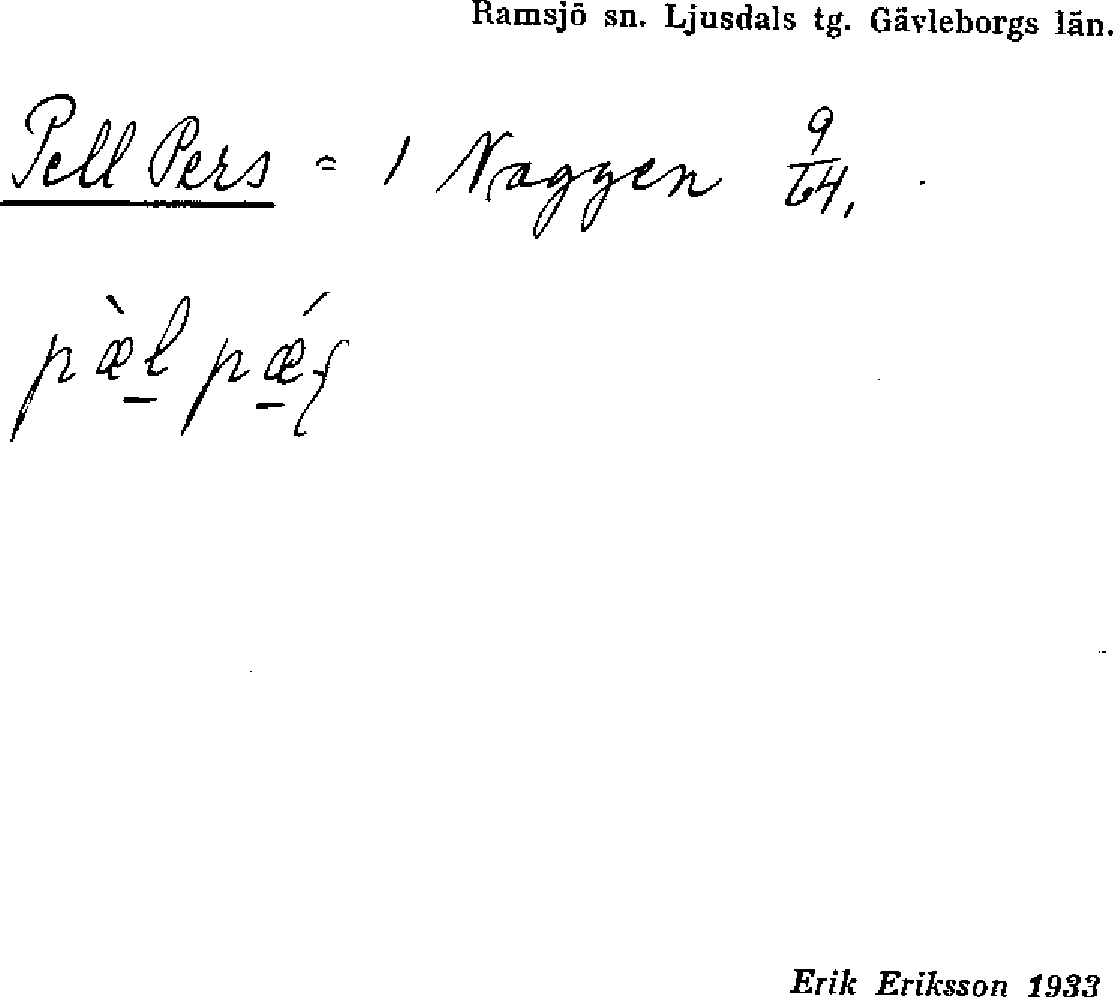 Ramsjö sn. Ljusdals tg. Gävleborgs län.
Pell Pers = 1 Naggen 9/64,
pæ̀l pǽʂ
Erik Eriksson 1933